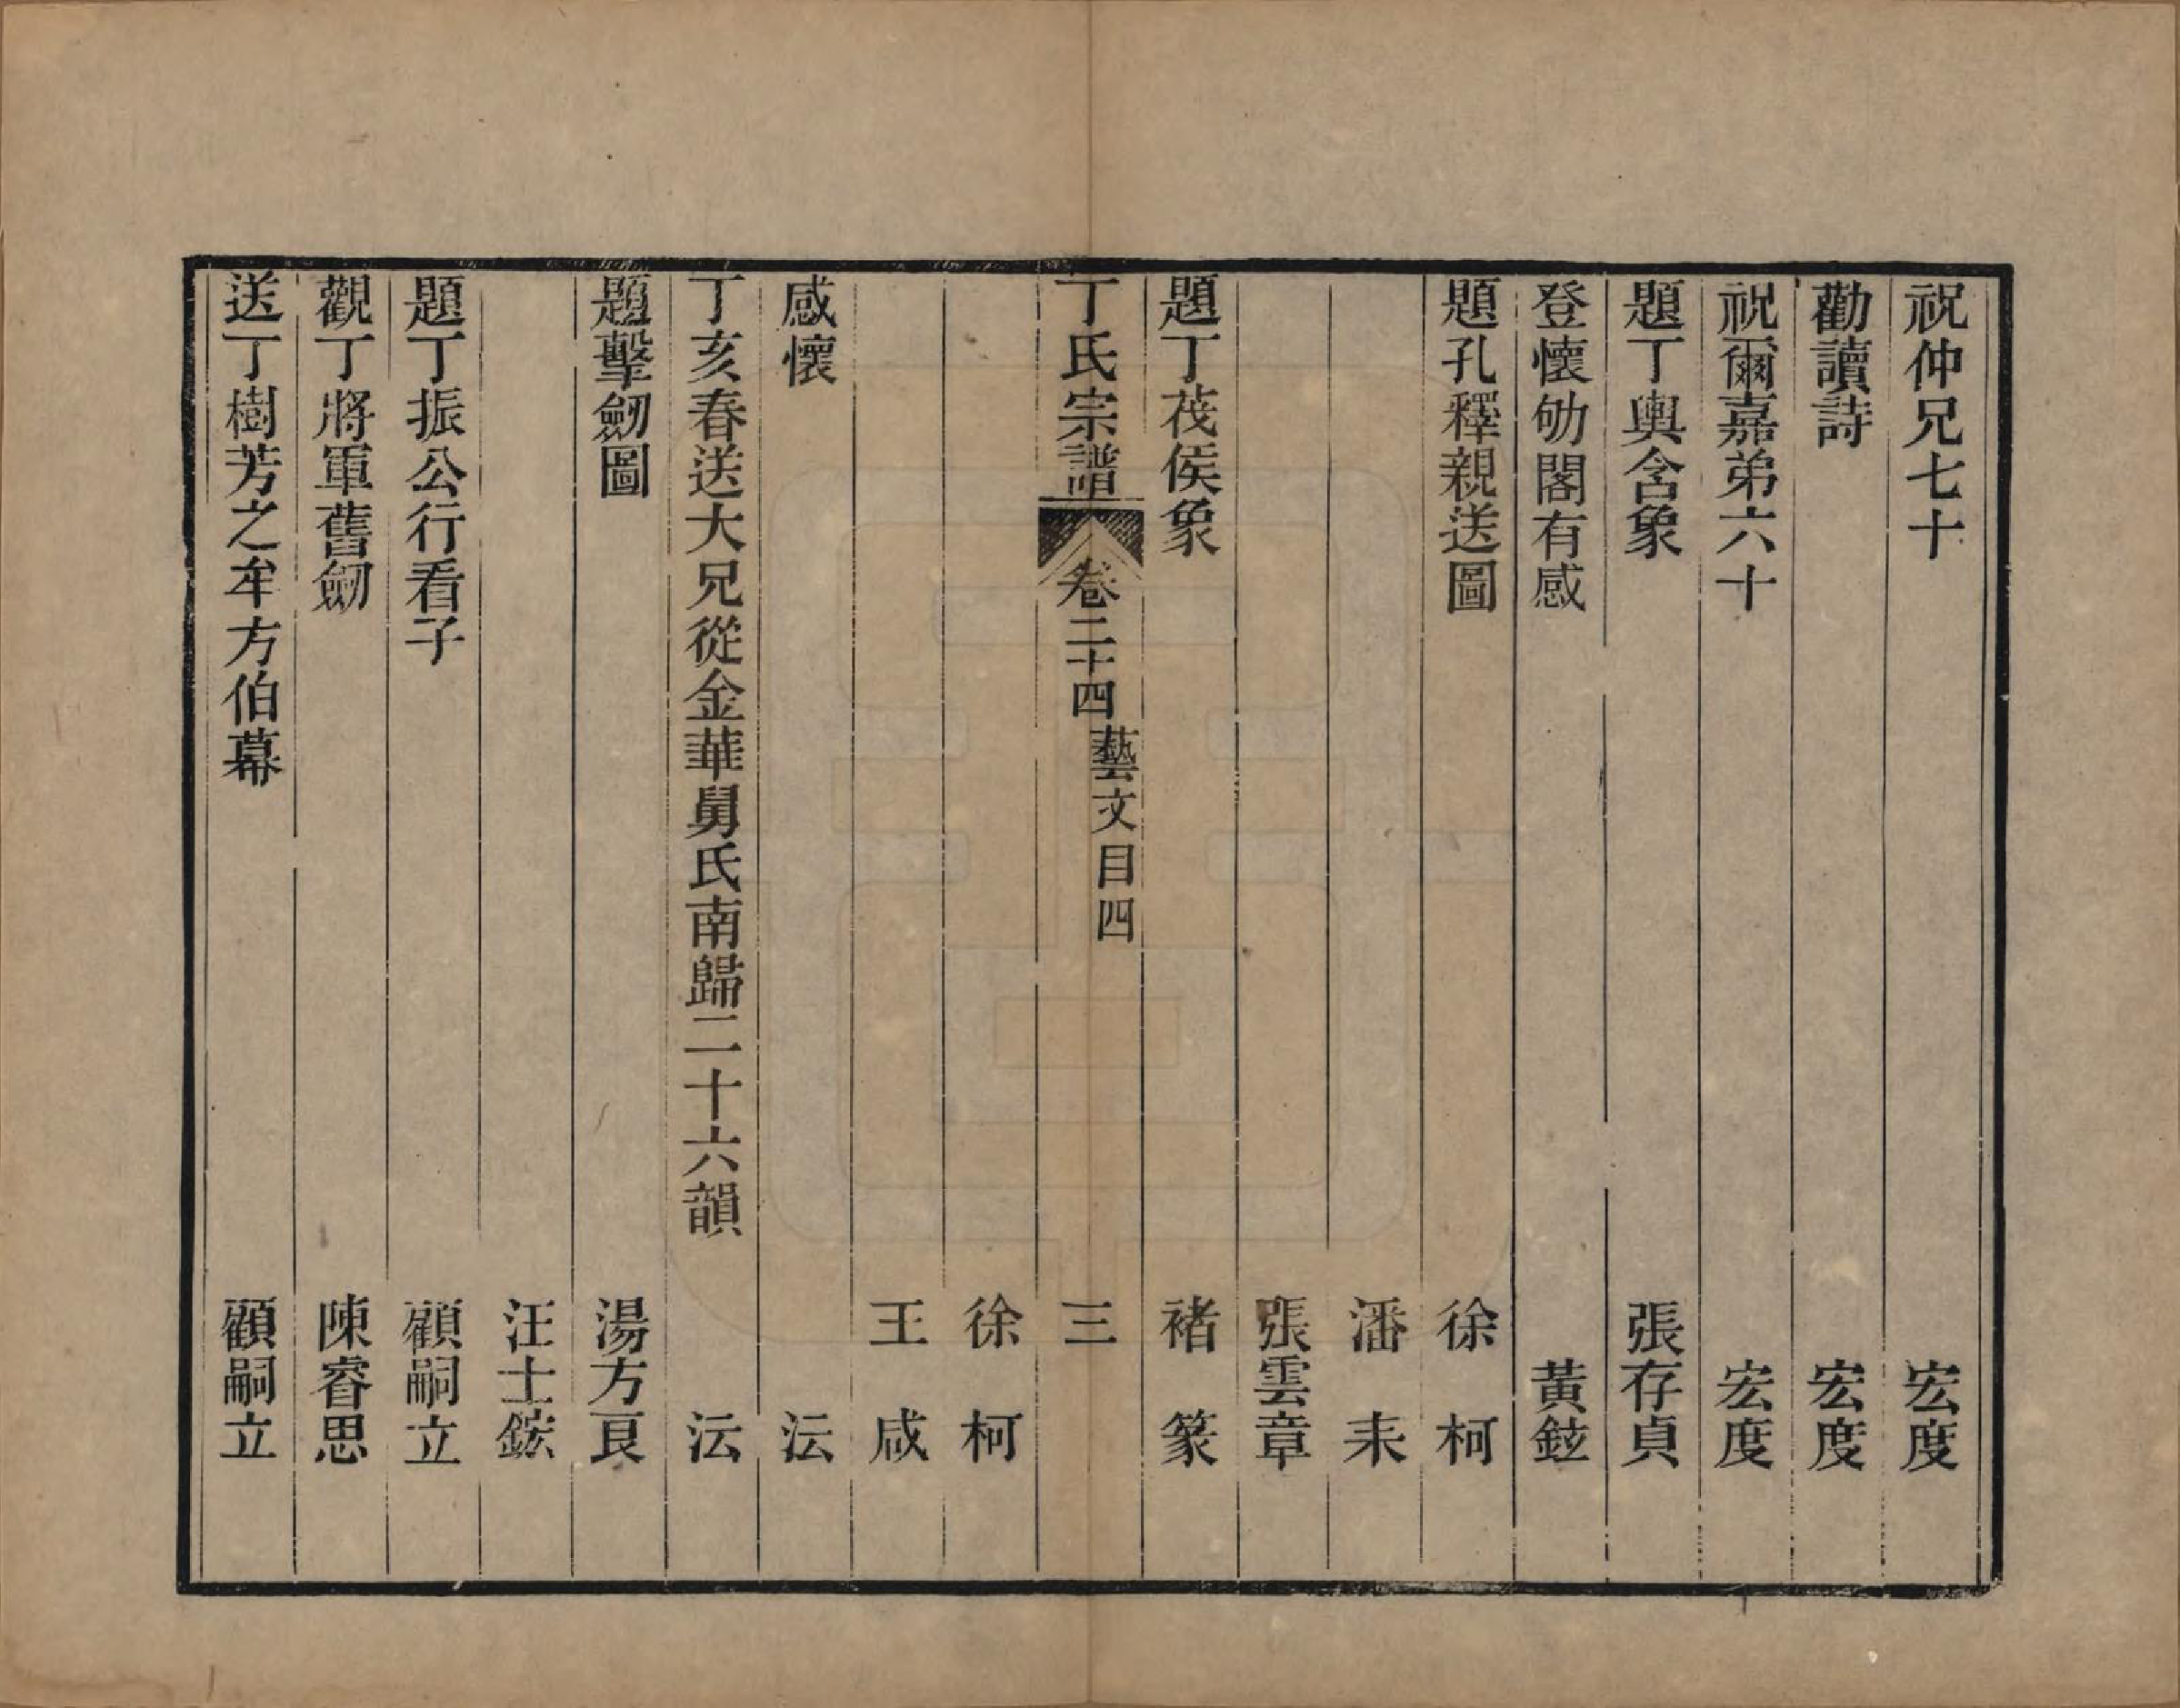 祝仲兄七十　宏度
勸讀詩　宏度
祝爾嘉弟六十　宏度
題丁輿含象　張存貞
登懷劬閣有感　黃鉉
題孔釋親送圖　徐柯
潘耒
張雲章
題丁茷侯象　褚篆
丁氏宗譜　卷二十四　藝文目四　三
徐柯
王咸
感懷　沄
丁亥春送大兄從金華舅氏南歸二十六韻　沄
題擊劒圖　湯方良
汪士鋐
題丁振公行看子　顧嗣立
觀丁將軍舊劒　陳睿思
送丁樹芳之牟方伯幕　顧嗣立